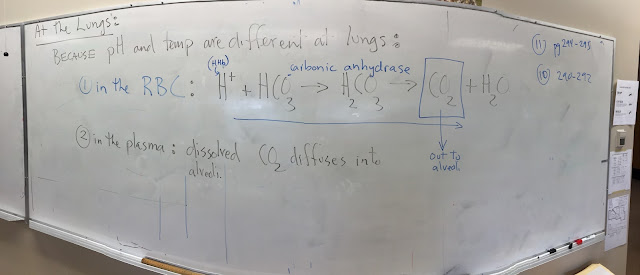 At the Lungs:
BECAUSE pH and temp are different at lungs:
① in the RBC: (HHb) H⁺ + HCO₃⁻ → H₂CO₃ → CO₂ + H₂O
carbonic anhydrase
out to
alveoli
② in the plasma: dissolved CO₂ diffuses into
alveoli.
(11) pg 294-295
(10) 290-292